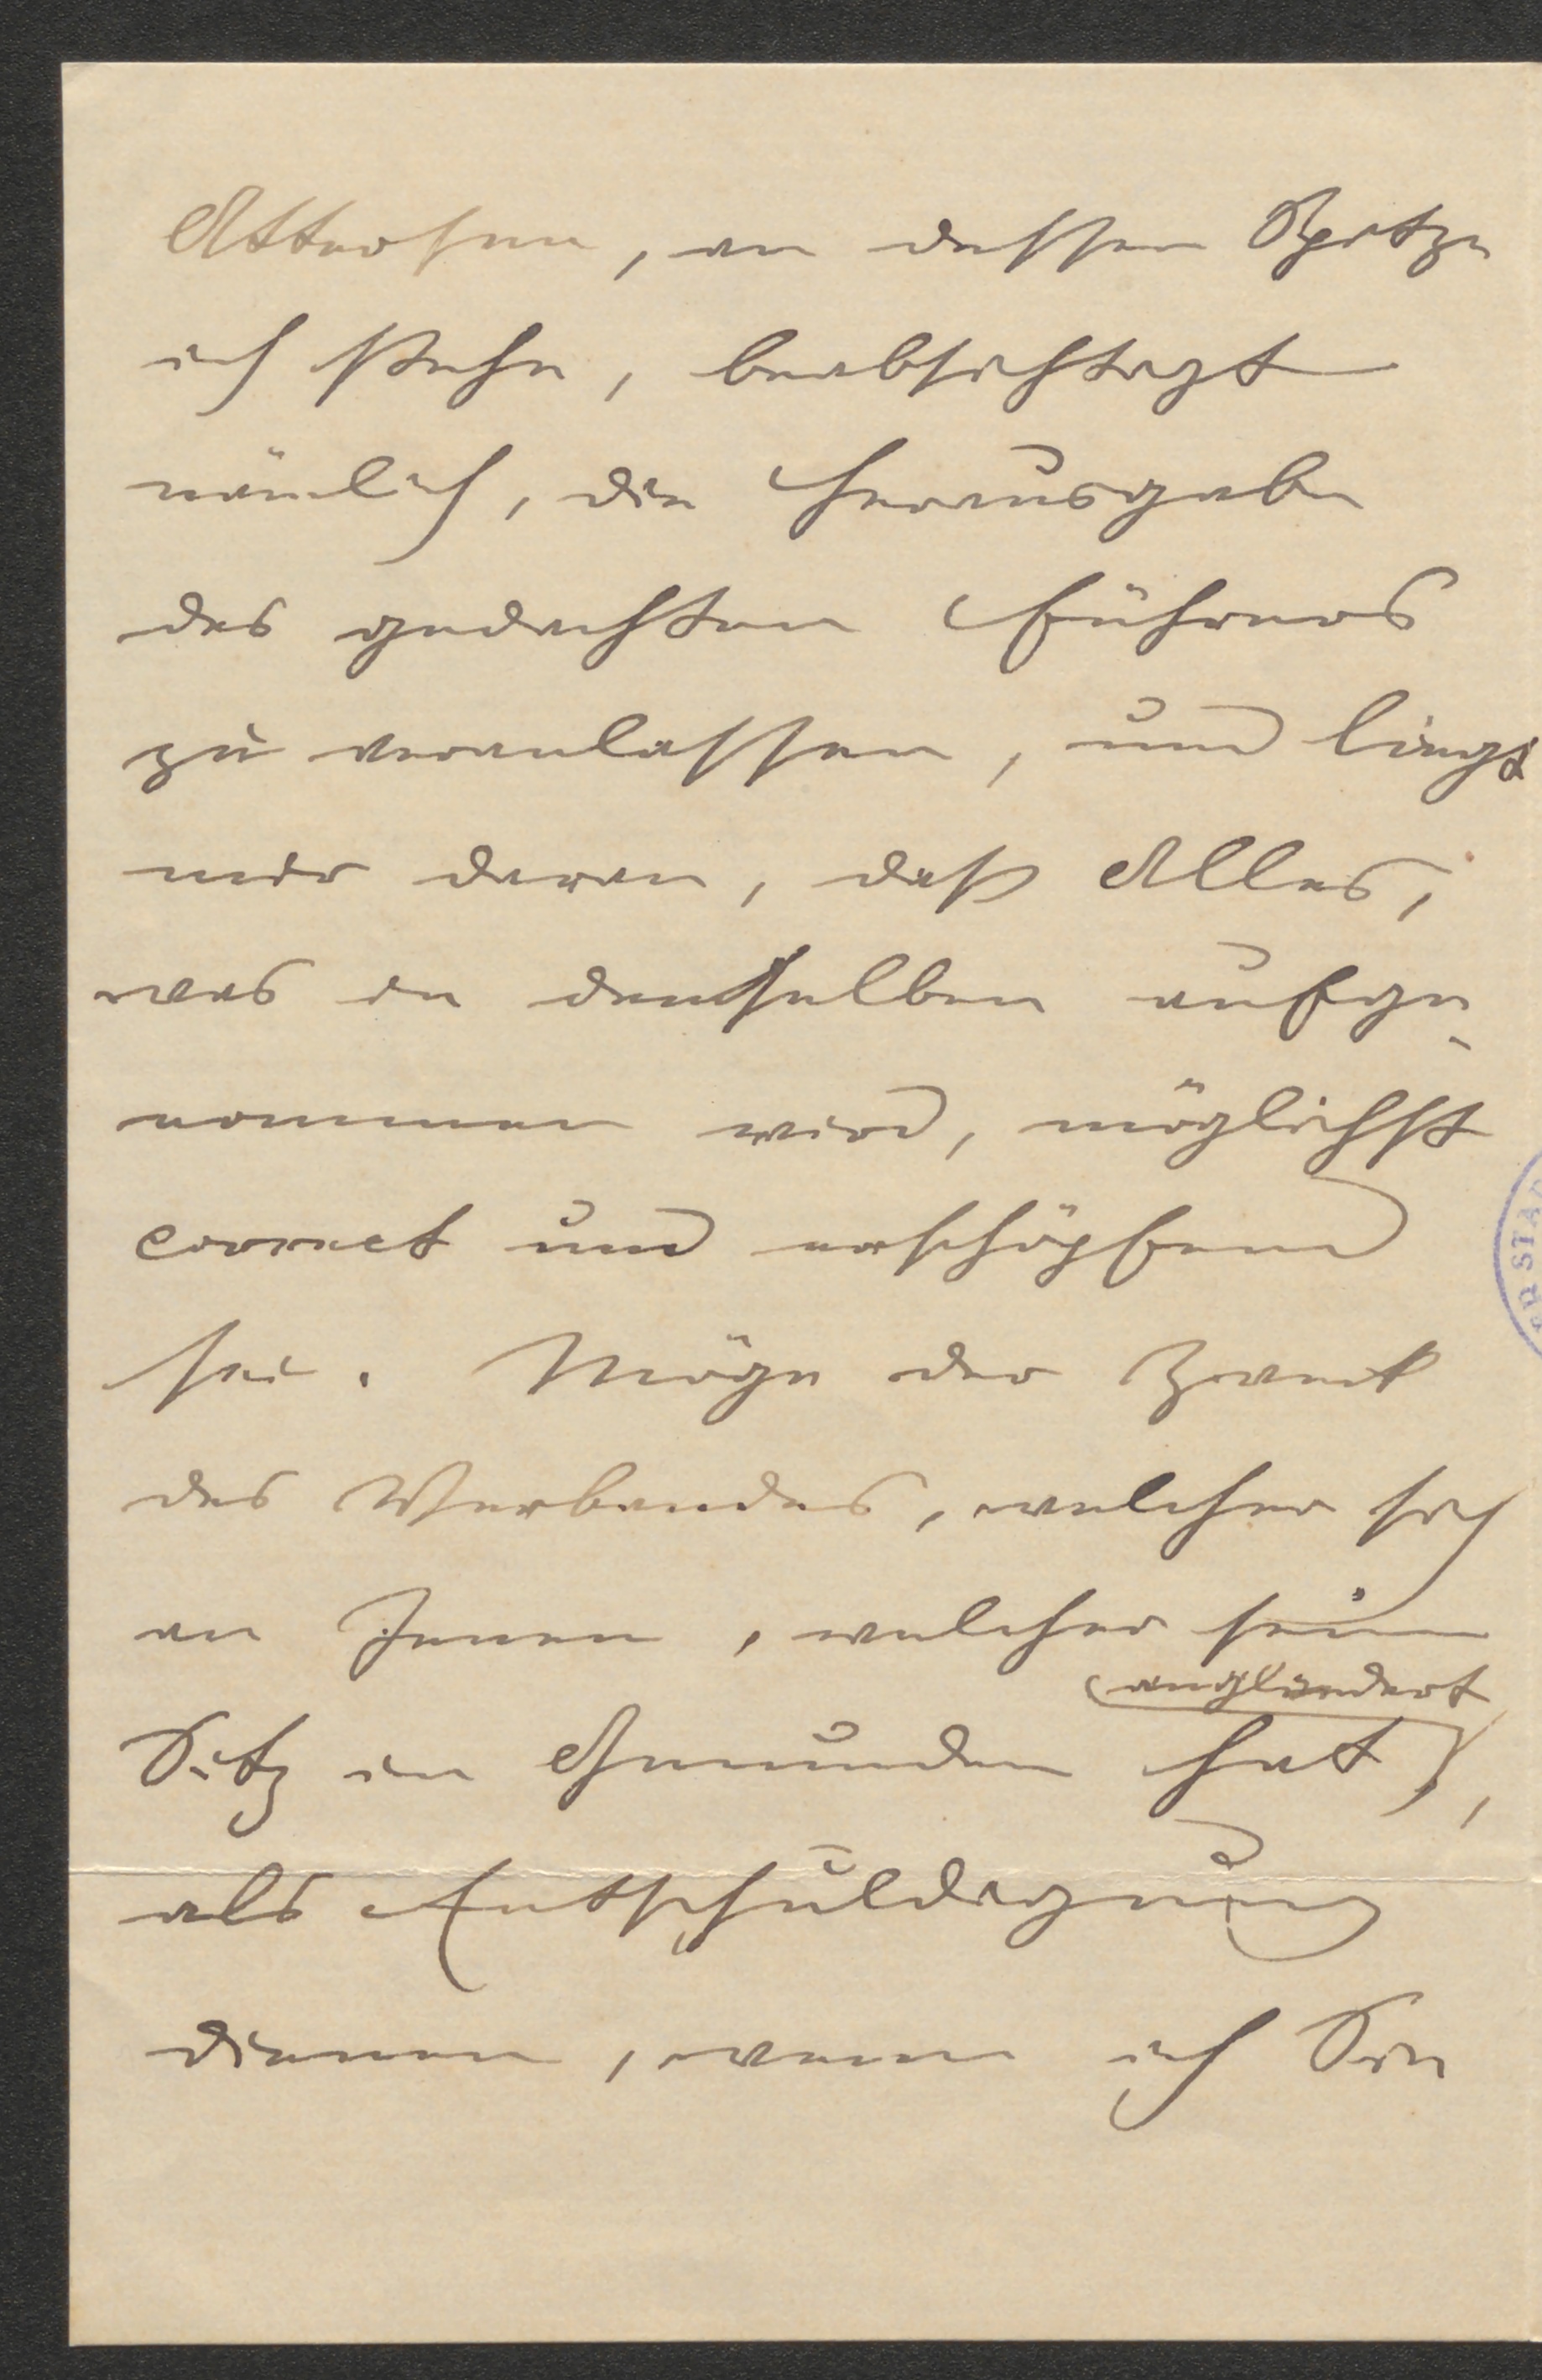 Attersee, an dessen Spitze
ich stehe, beabsichtigt
nämlich, die Herausgabe
des gedachten Führers
zu veranlassen, und liegt
mir daran, daß Alles,
was in demselben aufge-
nommen wird, möglichst
correct und erschöpfend
sei. Möge der Zweck
des Verbandes, welcher sich
an Jenen, welcher seinen
Sitz in Gmunden hat, angliedert
als Entschuldigung
dienen, wenn ich Sie